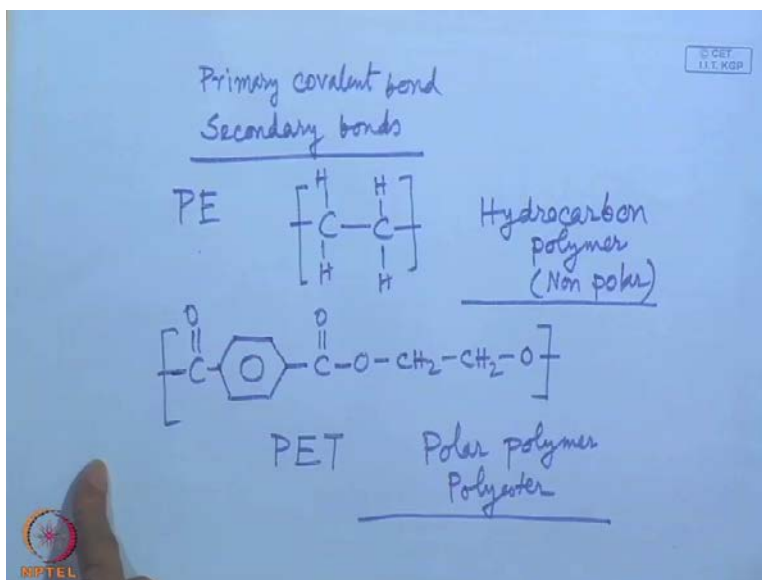 Primary covalent bond
© CET
I.I.T. KGP
Secondary bonds
PE
H H
C—C
H H
Hydrocarbon
polymer
(Non polar)
O O
C C—O—CH2—CH2—O
PET
Polar polymer
Polyester
NPTEL